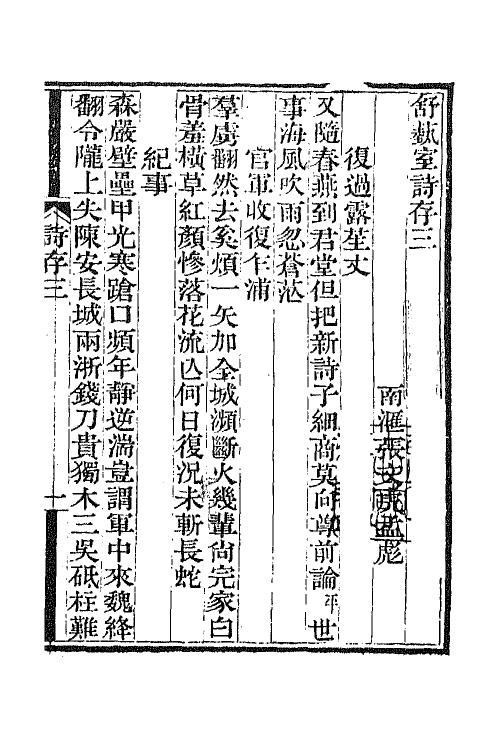 舒蓺室詩存三
南滙張文虎孟彪
復過露芓丈
又隨春燕到君堂但把新詩子細商莫向尊前論平世
事海風吹雨忽蒼茫
官軍收復乍浦
羣虜翻然去奚煩一矢加全城瀕斷火幾輩尙完家白
骨羞橫草紅顏慘落花流亾何日復況未斬長蛇
紀事
森嚴壁壘甲光寒蹌口頻年靜逆湍豈謂軍中來魏絳
翻令隴上失陳安長城兩浙錢刀貴獨木三吳砥柱難
詩存三
一